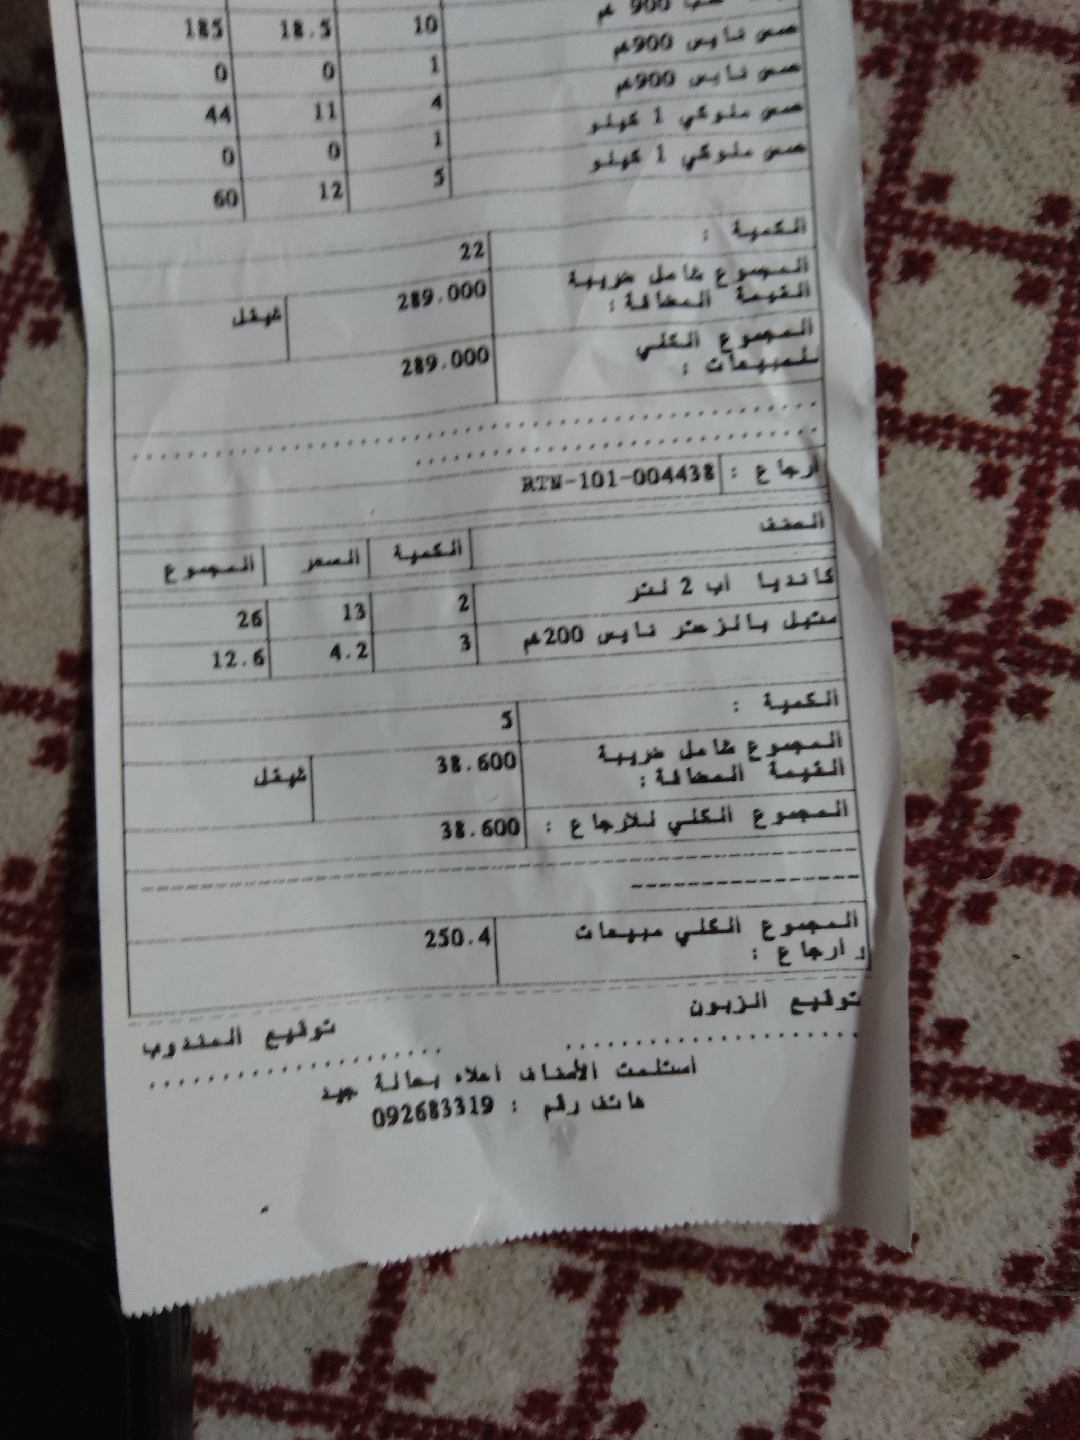 900 غم 10 18.5 185
حمص نايس 900غم 1 0 0
حمص نايس 900غم 4 11 44
حمص ملوكي 1 كيلو 1 0 0
حمص ملوكي 1 كيلو 5 12 60
الكمية : 22
المجموع شامل ضريبة القيمة المضافة : 289.000 شيقل
المجموع الكلي للمبيعات : 289.000
ارجاع : RTN-101-004438
الصنف الكمية السعر المجموع
كانديا أب 2 لتر 2 13 26
متبل بالزعتر نايس 200غم 3 4.2 12.6
الكمية : 5
المجموع شامل ضريبة القيمة المضافة : 38.600 شيقل
المجموع الكلي للارجاع : 38.600
المجموع الكلي مبيعات و ارجاع : 250.4
توقيع الزبون توقيع المندوب
أستلمت الأصناف أعلاه بحالة جيد
هاتف رقم : 092683319